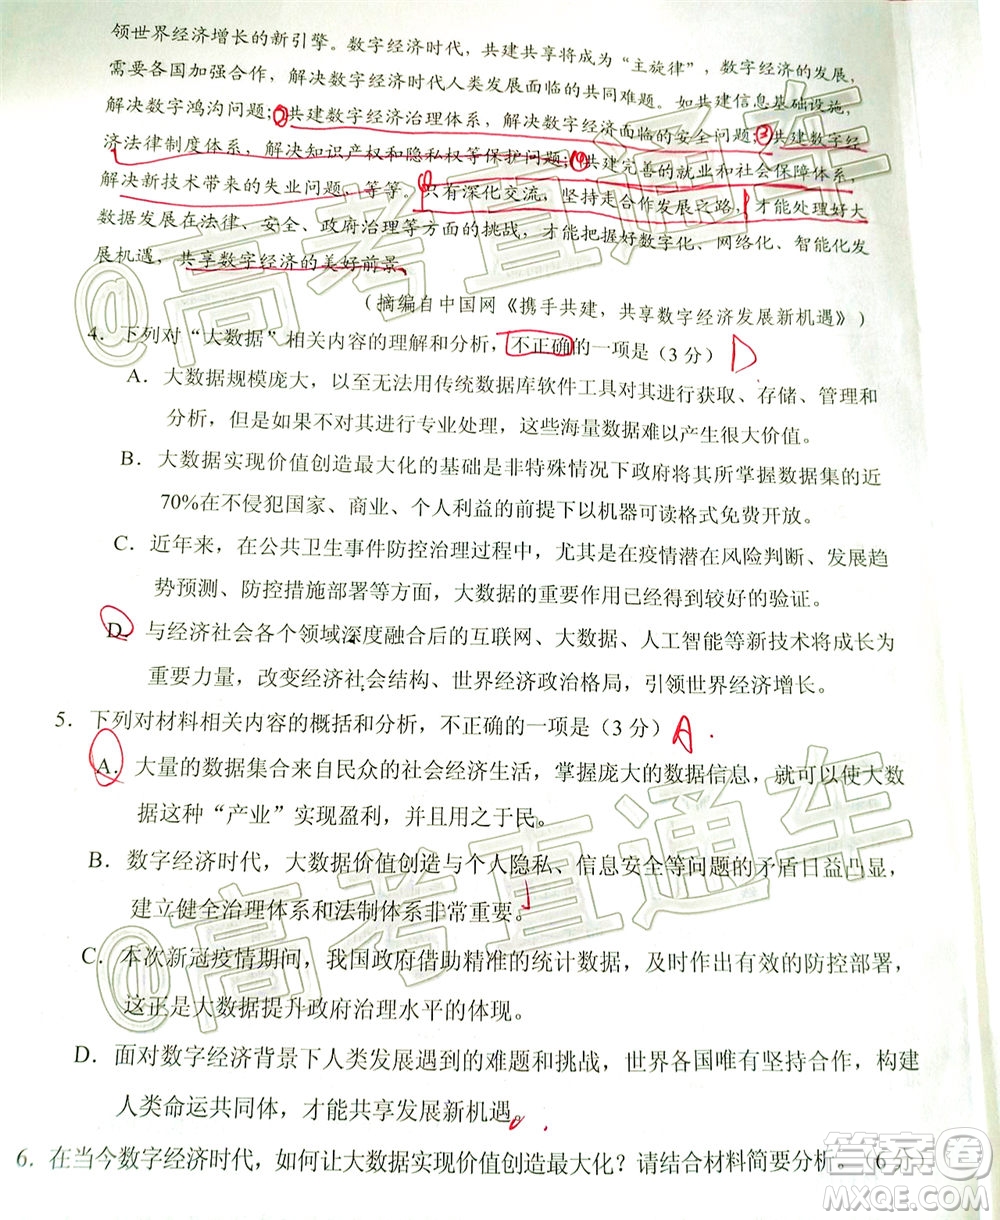 领世界经济增长的新引擎。数字经济时代，共建共享将成为“主旋律”，数字经济的发展，
需要各国加强合作，解决数字经济时代人类发展面临的共同难题。如共建信息基础设施，
解决数字鸿沟问题；②共建数字经济治理体系，解决数字经济面临的安全问题；③共建数字经
济法律制度体系，解决知识产权和隐私权等保护问题；④共建完善的就业和社会保障体系，
解决新技术带来的失业问题，等等。只有深化交流，坚持走合作发展之路，才能处理好大
数据发展在法律、安全、政府治理等方面的挑战，才能把握好数字化、网络化、智能化发
展机遇，共享数字经济的美好前景
（摘编自中国网《携手共建，共享数字经济发展新机遇》）
4．下列对“大数据”相关内容的理解和分析，不正确的一项是（3 分） D
A．大数据规模庞大，以至无法用传统数据库软件工具对其进行获取、存储、管理和
分析，但是如果不对其进行专业处理，这些海量数据难以产生很大价值。
B．大数据实现价值创造最大化的基础是非特殊情况下政府将其所掌握数据集的近
70%在不侵犯国家、商业、个人利益的前提下以机器可读格式免费开放。
C．近年来，在公共卫生事件防控治理过程中，尤其是在疫情潜在风险判断、发展趋
势预测、防控措施部署等方面，大数据的重要作用已经得到较好的验证。
D．与经济社会各个领域深度融合后的互联网、大数据、人工智能等新技术将成长为
重要力量，改变经济社会结构、世界经济政治格局，引领世界经济增长。
5．下列对材料相关内容的概括和分析，不正确的一项是（3 分） A．
A．大量的数据集合来自民众的社会经济生活，掌握庞大的数据信息，就可以使大数
据这种“产业”实现盈利，共用于民。
B．数字经济时代，大数据价值创造与个人隐私、信息安全等问题的矛盾日益凸显，
建立健全治理体系和法制体系非常重要。
C．本次新冠疫情期间，我国政府借助精准的统计数据，及时作出有效的防控部署，
这正是大数据提升政府治理水平的体现。
D．面对数字经济背景下人类发展遇到的难题和挑战，世界各国唯有坚持合作，构建
人类命运共同体，才能共享发展新机遇。
6．在当今数字经济时代，如何让大数据实现价值创造最大化？请结合材料简要分析。（6
@高考直通车
@高考直通车
答案圈
MXQE.COM